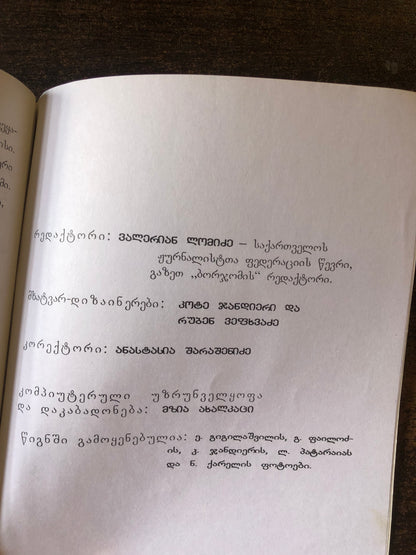 რედაქტორი: ვალერიან ლომიძე – საქართველოს
ჟურნალისტთა ფედერაციის წევრი,
გაზეთ „ბორჯომის“ რედაქტორი.
მხატვარ-დიზაინერები: კოტე ჯანდიერი და
რუბენ ვეფხვაძე
კორექტორი: ანასტასია შარაშენიძე
კომპიუტერული უზრუნველყოფა
და დაკაბადონება: მზია ახალკაცი
წიგნში გამოყენებულია: ე. გიგილაშვილის, გ. ფაილოძ-
ის, კ. ჯანდიერის, ლ. პატარაიას
და ნ. ქარელის ფოტოები.